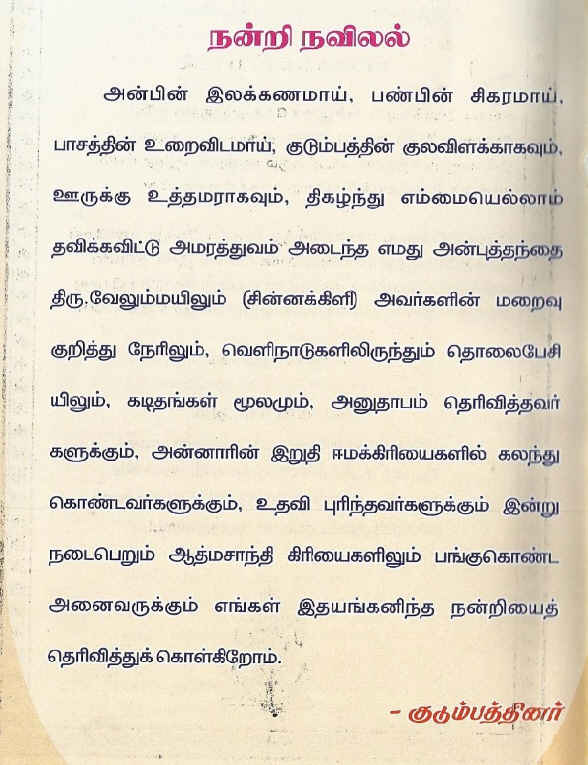 நன்றி நவிலல்
அன்பின் இலக்கணமாய், பண்பின் சிகரமாய்,
பாசத்தின் உறைவிடமாய், குடும்பத்தின் குலவிளக்காகவும்,
ஊருக்கு உத்தமராகவும், திகழ்ந்து எம்மையெல்லாம்
தவிக்கவிட்டு அமரத்துவம் அடைந்த எமது அன்புத்தந்தை
திரு.வேலும்மயிலும் (சின்னக்கிளி) அவர்களின் மறைவு
குறித்து நேரிலும், வெளிநாடுகளிலிருந்தும் தொலைபேசி
யிலும், கடிதங்கள் மூலமும், அனுதாபம் தெரிவித்தவர்
களுக்கும், அன்னாரின் இறுதி ஈமக்கிரியைகளில் கலந்து
கொண்டவர்களுக்கும், உதவி புரிந்தவர்களுக்கும் இன்று
நடைபெறும் ஆத்மசாந்தி கிரியைகளிலும் பங்குகொண்ட
அனைவருக்கும் எங்கள் இதயங்கனிந்த நன்றியைத்
தெரிவித்துக் கொள்கிறோம்.
- குடும்பத்தினர்